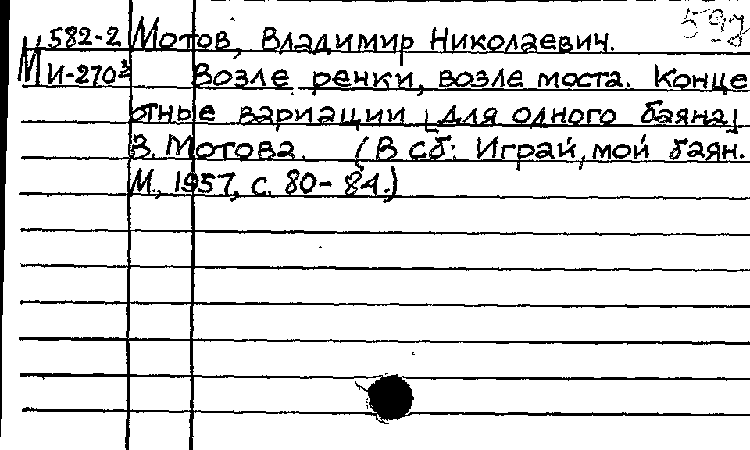 59д
М 582-2 Мотов, Владимир Николаевич.
И-270³ Возле речки, возле моста. Конце
ртные вариации [для одного баяна]
В. Мотова. (В сб: Играй, мой баян.
М., 1957, с. 80-84.)